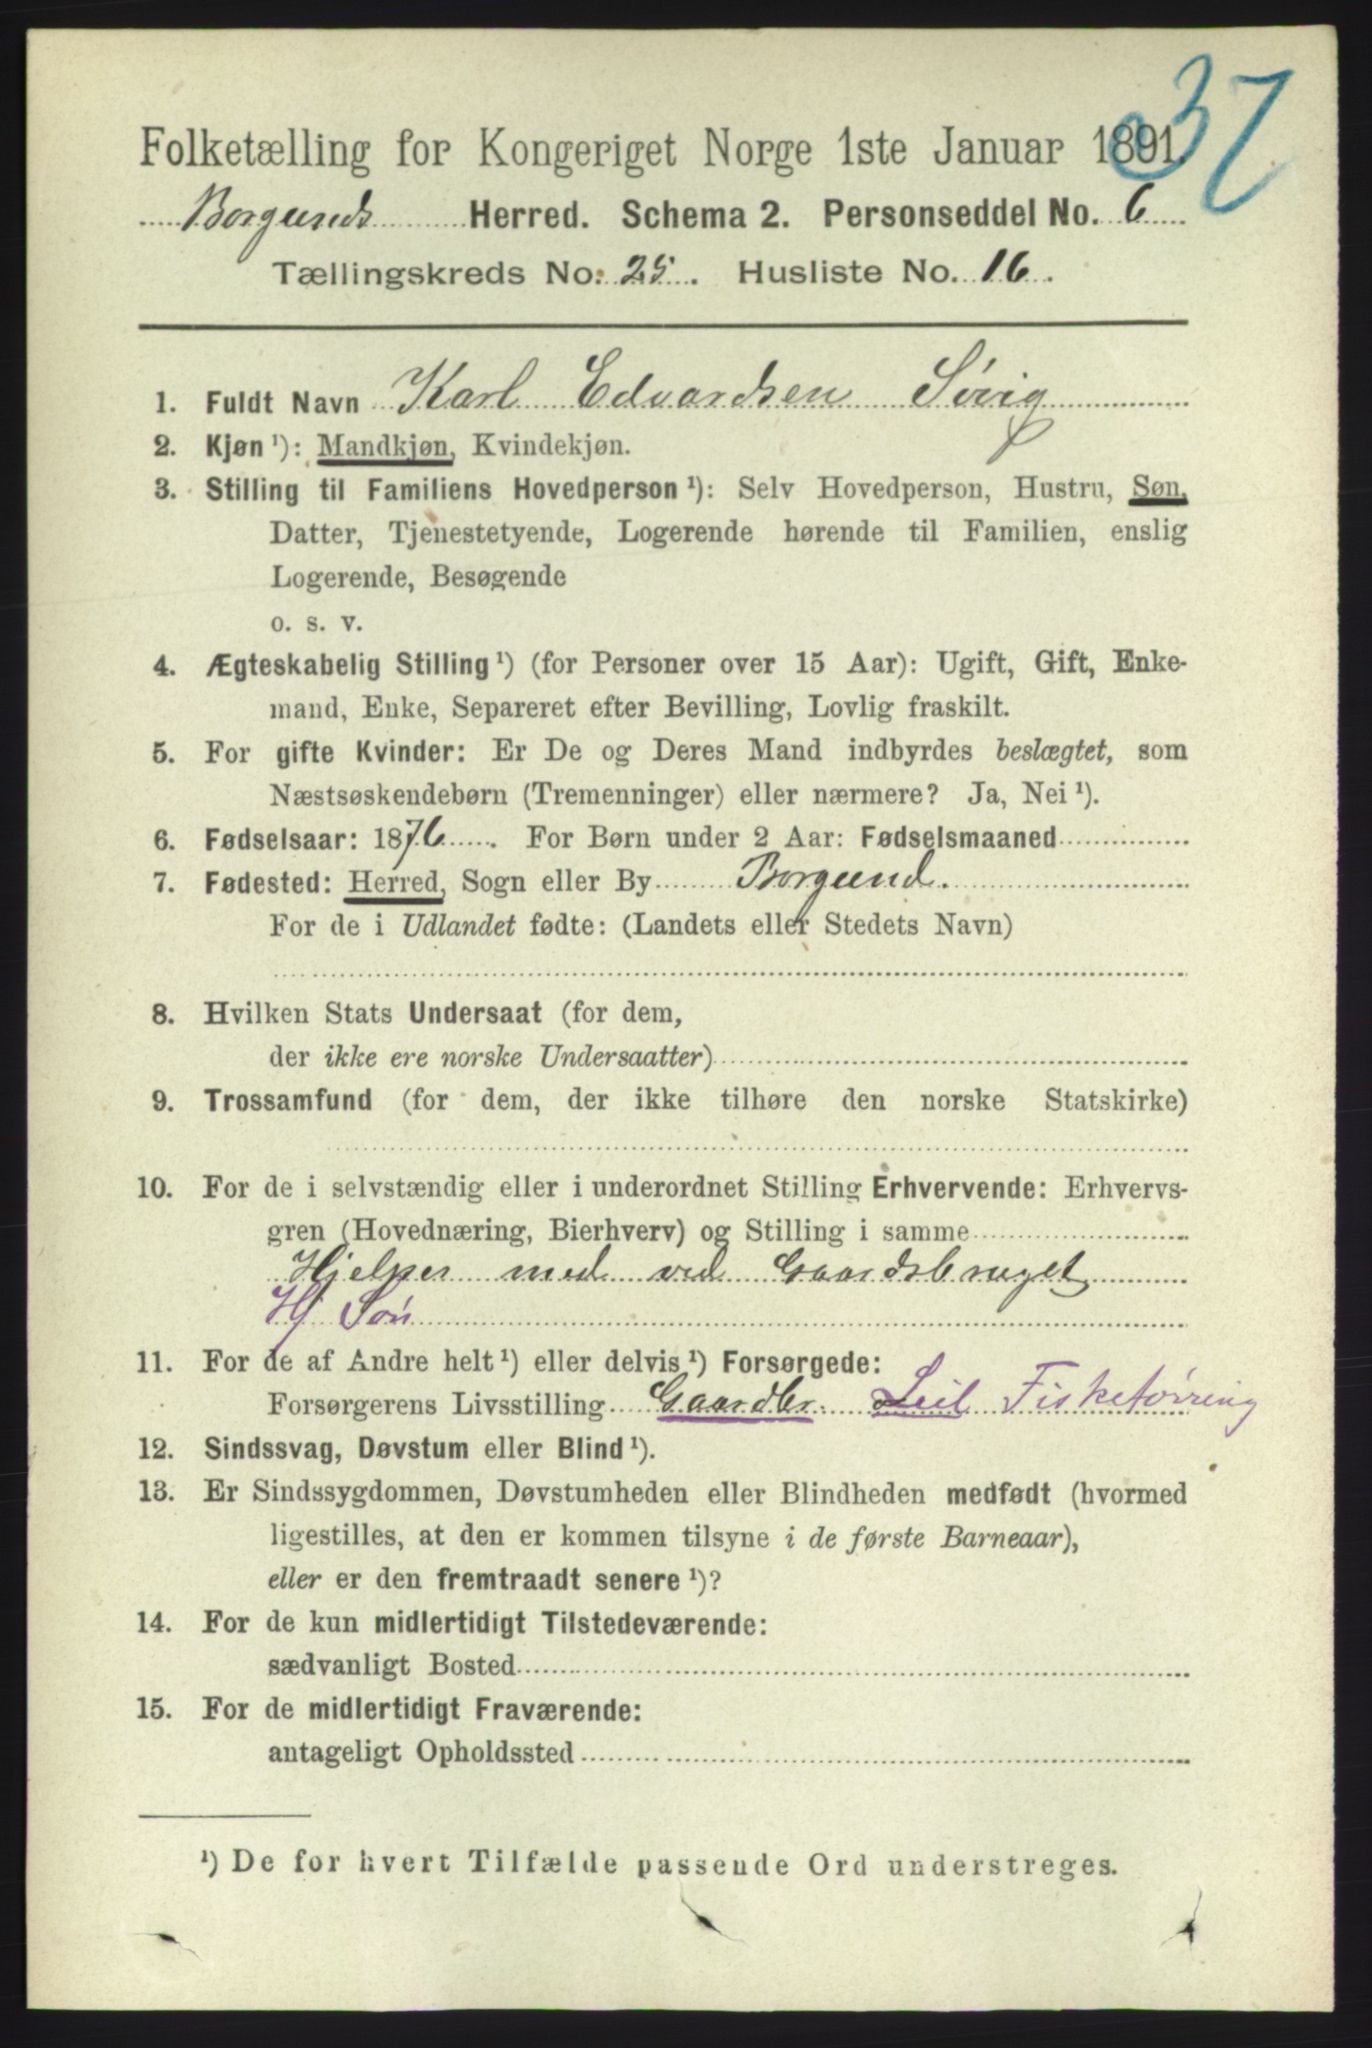 37
Folketælling for Kongeriget Norge 1ste Januar 1891.
Borgunds Herred. Schema 2. Personseddel No. 6
Tællingskreds No. 25. Husliste No. 16.
1. Fuldt Navn Karl Edvardsen Søvig
2. Kjøn ¹): Mandkjøn, Kvindekjøn.
3. Stilling til Familiens Hovedperson ¹): Selv Hovedperson, Hustru, Søn,
Datter, Tjenestetyende, Logerende hørende til Familien, enslig
Logerende, Besøgende
o. s. v.
4. Ægteskabelig Stilling ¹) (for Personer over 15 Aar): Ugift, Gift, Enke-
mand, Enke, Separeret efter Bevilling, Lovlig fraskilt.
5. For gifte Kvinder: Er De og Deres Mand indbyrdes beslægtet, som
Næstsøskendebørn (Tremenninger) eller nærmere? Ja, Nei ¹).
6. Fødselsaar: 1876. For Børn under 2 Aar: Fødselsmaaned
7. Fødested: Herred, Sogn eller By Borgund.
For de i Udlandet fødte: (Landets eller Stedets Navn)
8. Hvilken Stats Undersaat (for dem,
der ikke ere norske Undersaatter)
9. Trossamfund (for dem, der ikke tilhøre den norske Statskirke)
10. For de i selvstændig eller i underordnet Stilling Erhvervende: Erhvervs-
gren (Hovednæring, Bierhverv) og Stilling i samme
Hjelper med ved Gaardsbruget
Hj Søn
11. For de af Andre helt ¹) eller delvis ¹) Forsørgede:
Forsørgerens Livsstilling Gaardbr. Leil Fisketørring
12. Sindssvag, Døvstum eller Blind ¹).
13. Er Sindssygdommen, Døvstumheden eller Blindheden medfødt (hvormed
ligestilles, at den er kommen tilsyne i de første Barneaar),
eller er den fremtraadt senere ¹)?
14. For de kun midlertidigt Tilstedeværende:
sædvanligt Bosted
15. For de midlertidigt Fraværende:
antageligt Opholdssted
¹) De for hvert Tilfælde passende Ord understreges.